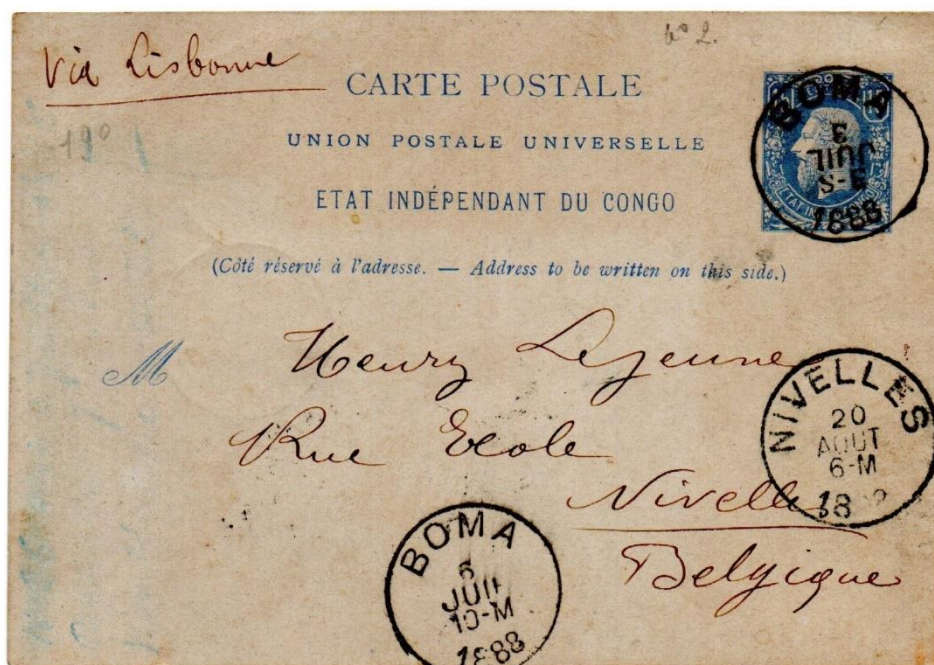 nº 2.
Via Lisbonne
CARTE POSTALE
19º
UNION POSTALE UNIVERSELLE
ETAT INDÉPENDANT DU CONGO
15
BOMA
3
JUIL
5-S
1888
(Côté réservé à l'adresse. — Address to be written on this side.)
M Henry Lejeune
Rue Ecole
Nivelles
Belgique
NIVELLES
20
AOUT
6-M
18
BOMA
6
JUIL
10-M
1888